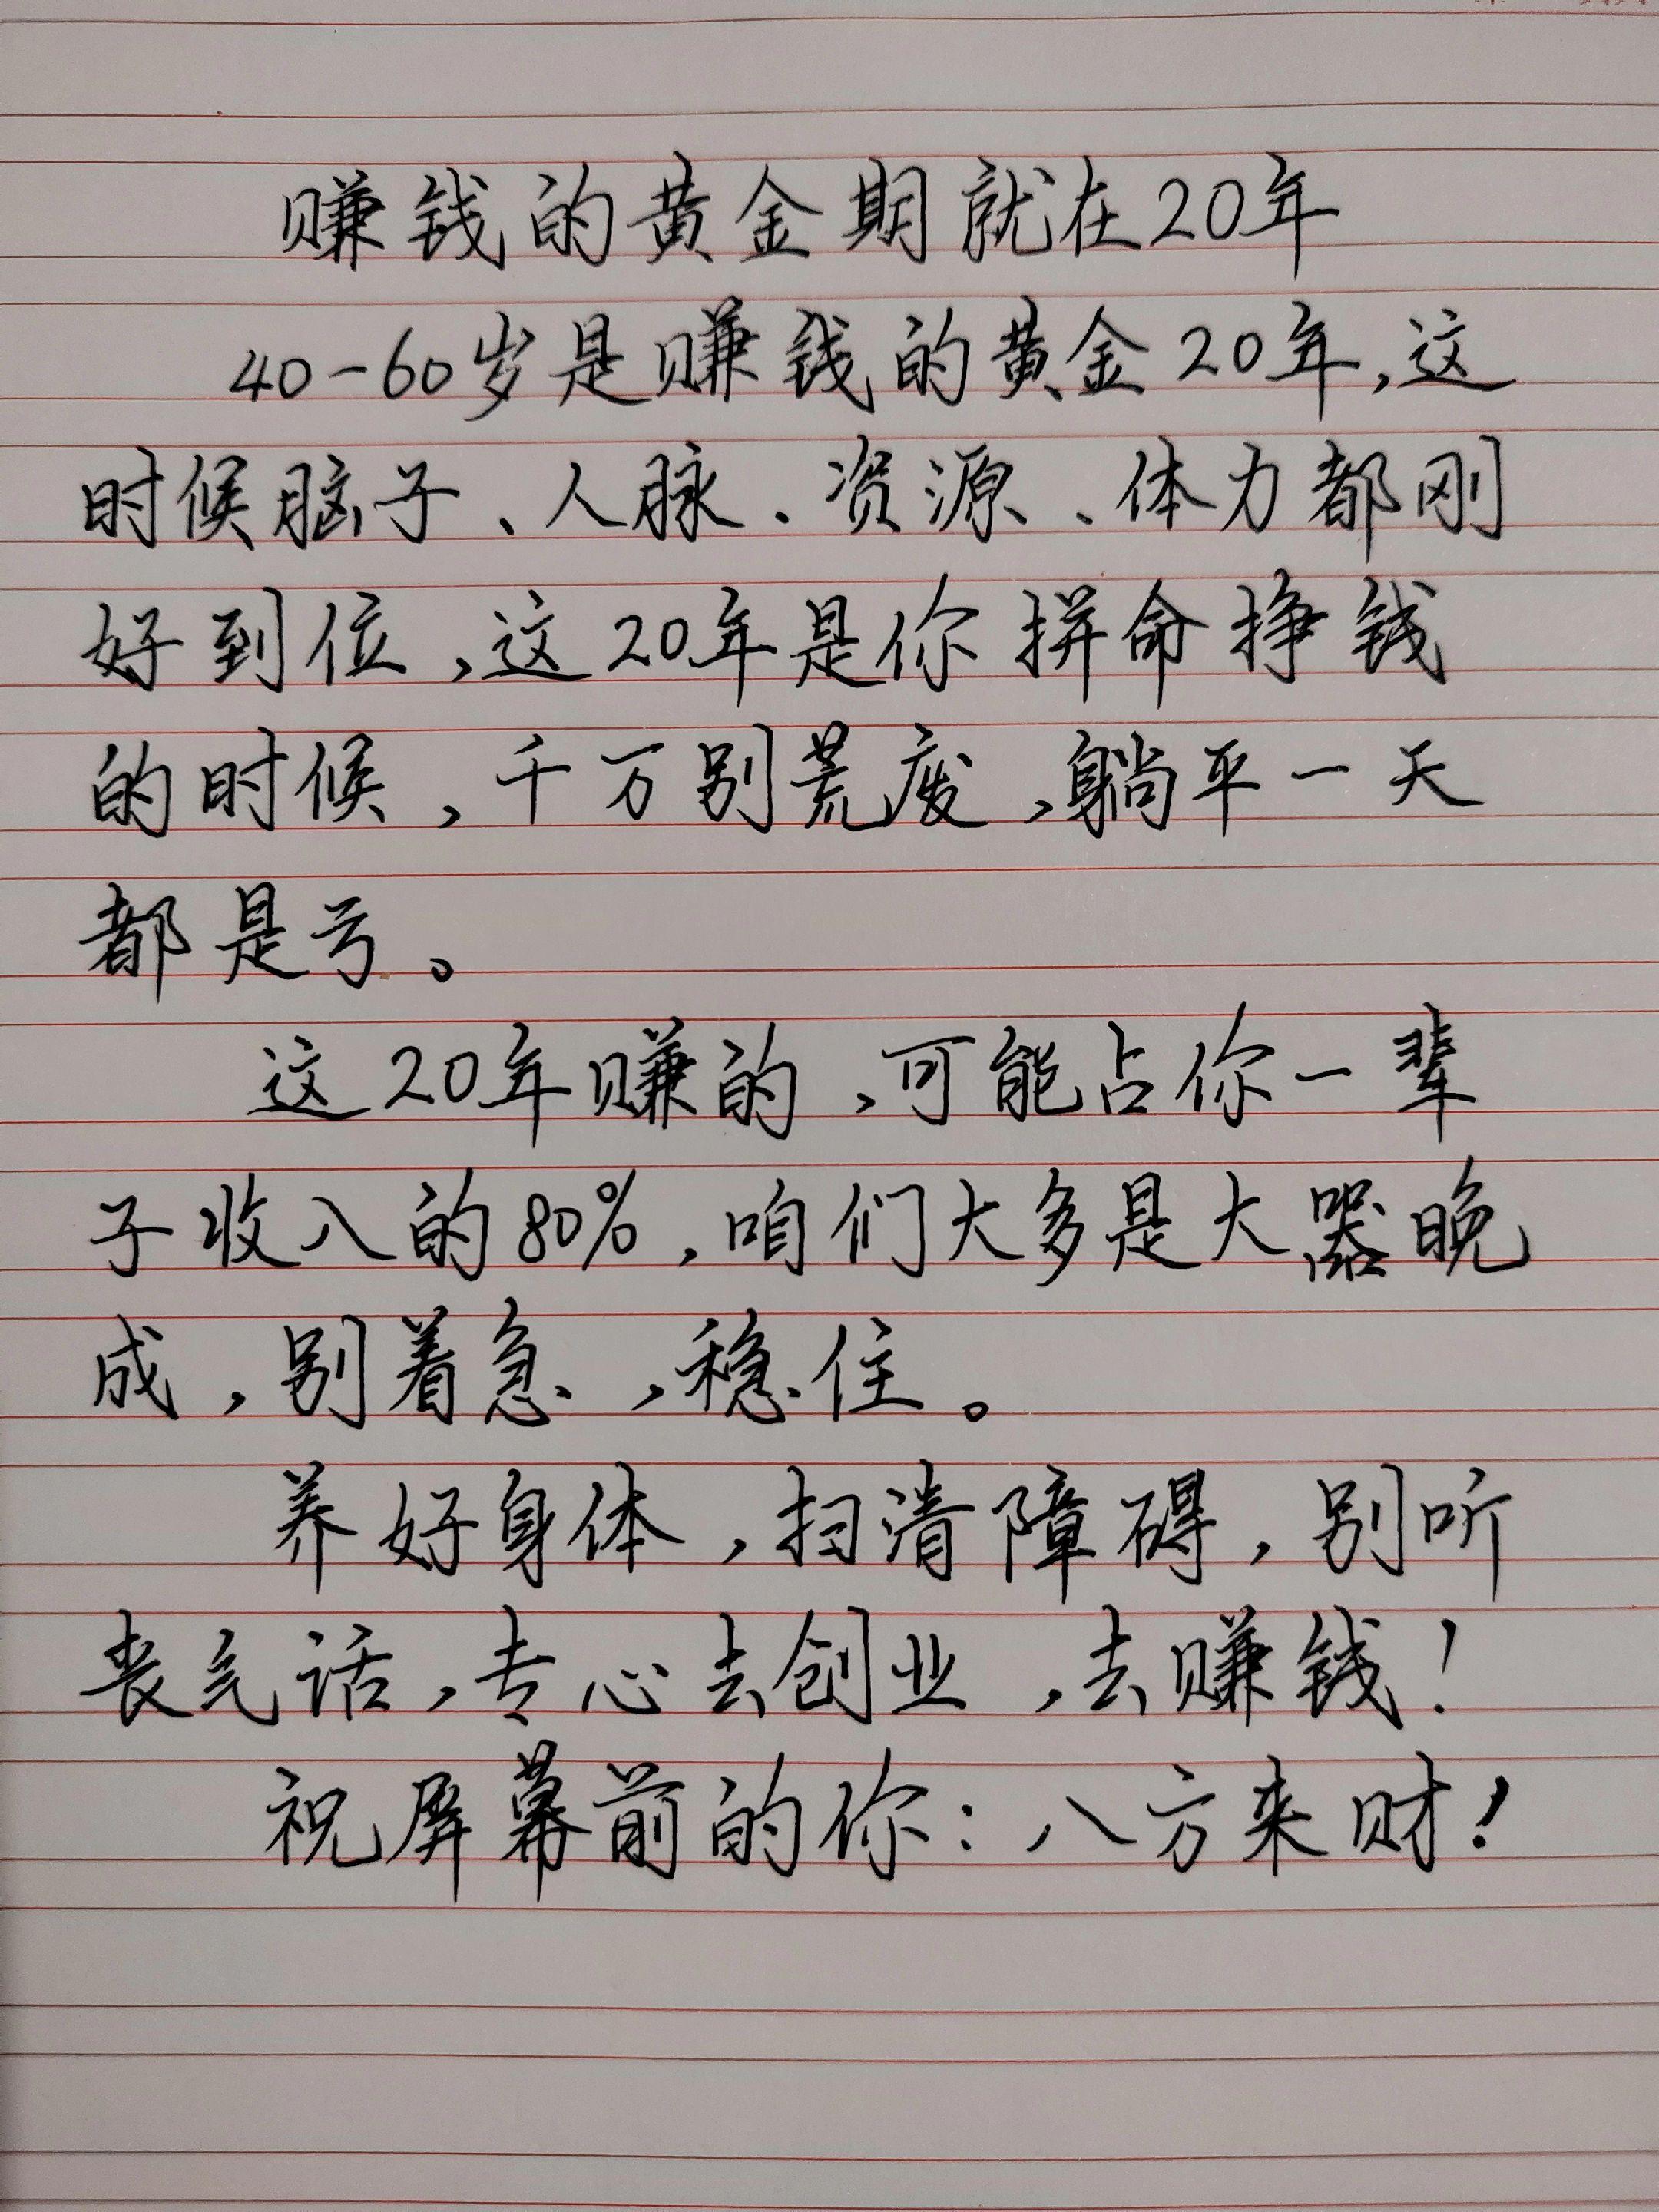 赚钱的黄金期就在20年
40-60岁是赚钱的黄金20年,这
时候脑子、人脉、资源、体力都刚
好到位,这20年是你拼命挣钱
的时候,千万别荒废,躺平一天
都是亏。
这20年赚的,可能占你一辈
子收入的80%,咱们大多是大器晚
成,别着急,稳住。
养好身体,扫清障碍,别听
丧气话,专心去创业,去赚钱!
祝屏幕前的你:八方来财!